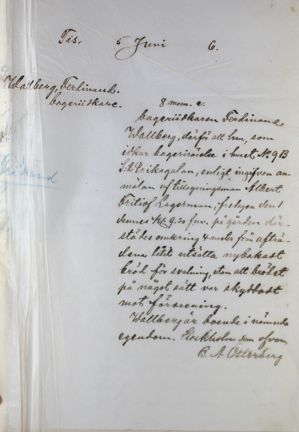 Tis. 5 Juni 6.
Wallberg, Ferdinand.
bageriidkare.
8 mom. c.
bageriidkaren Ferdinand
Wallberg, därför att han, som
idkar bagerirörelse i huset N. 9 B
S:t Eriksgatan, enligt ingifven an-
mälan af tillsyningsman Albert
Fritiof Lagerman, fredagen den 1
dennes kl. 9.30 fm. på gården där-
städes omkring 4 meter från afträ-
dena låtit utsätta nybakadt
bröd för svalning, utan att brödet
på något sätt var skyddadt
mot förorening.
Wallberg är boende i nämnda
egendom. Stockholm som ofvan.
B. A. Otterberg